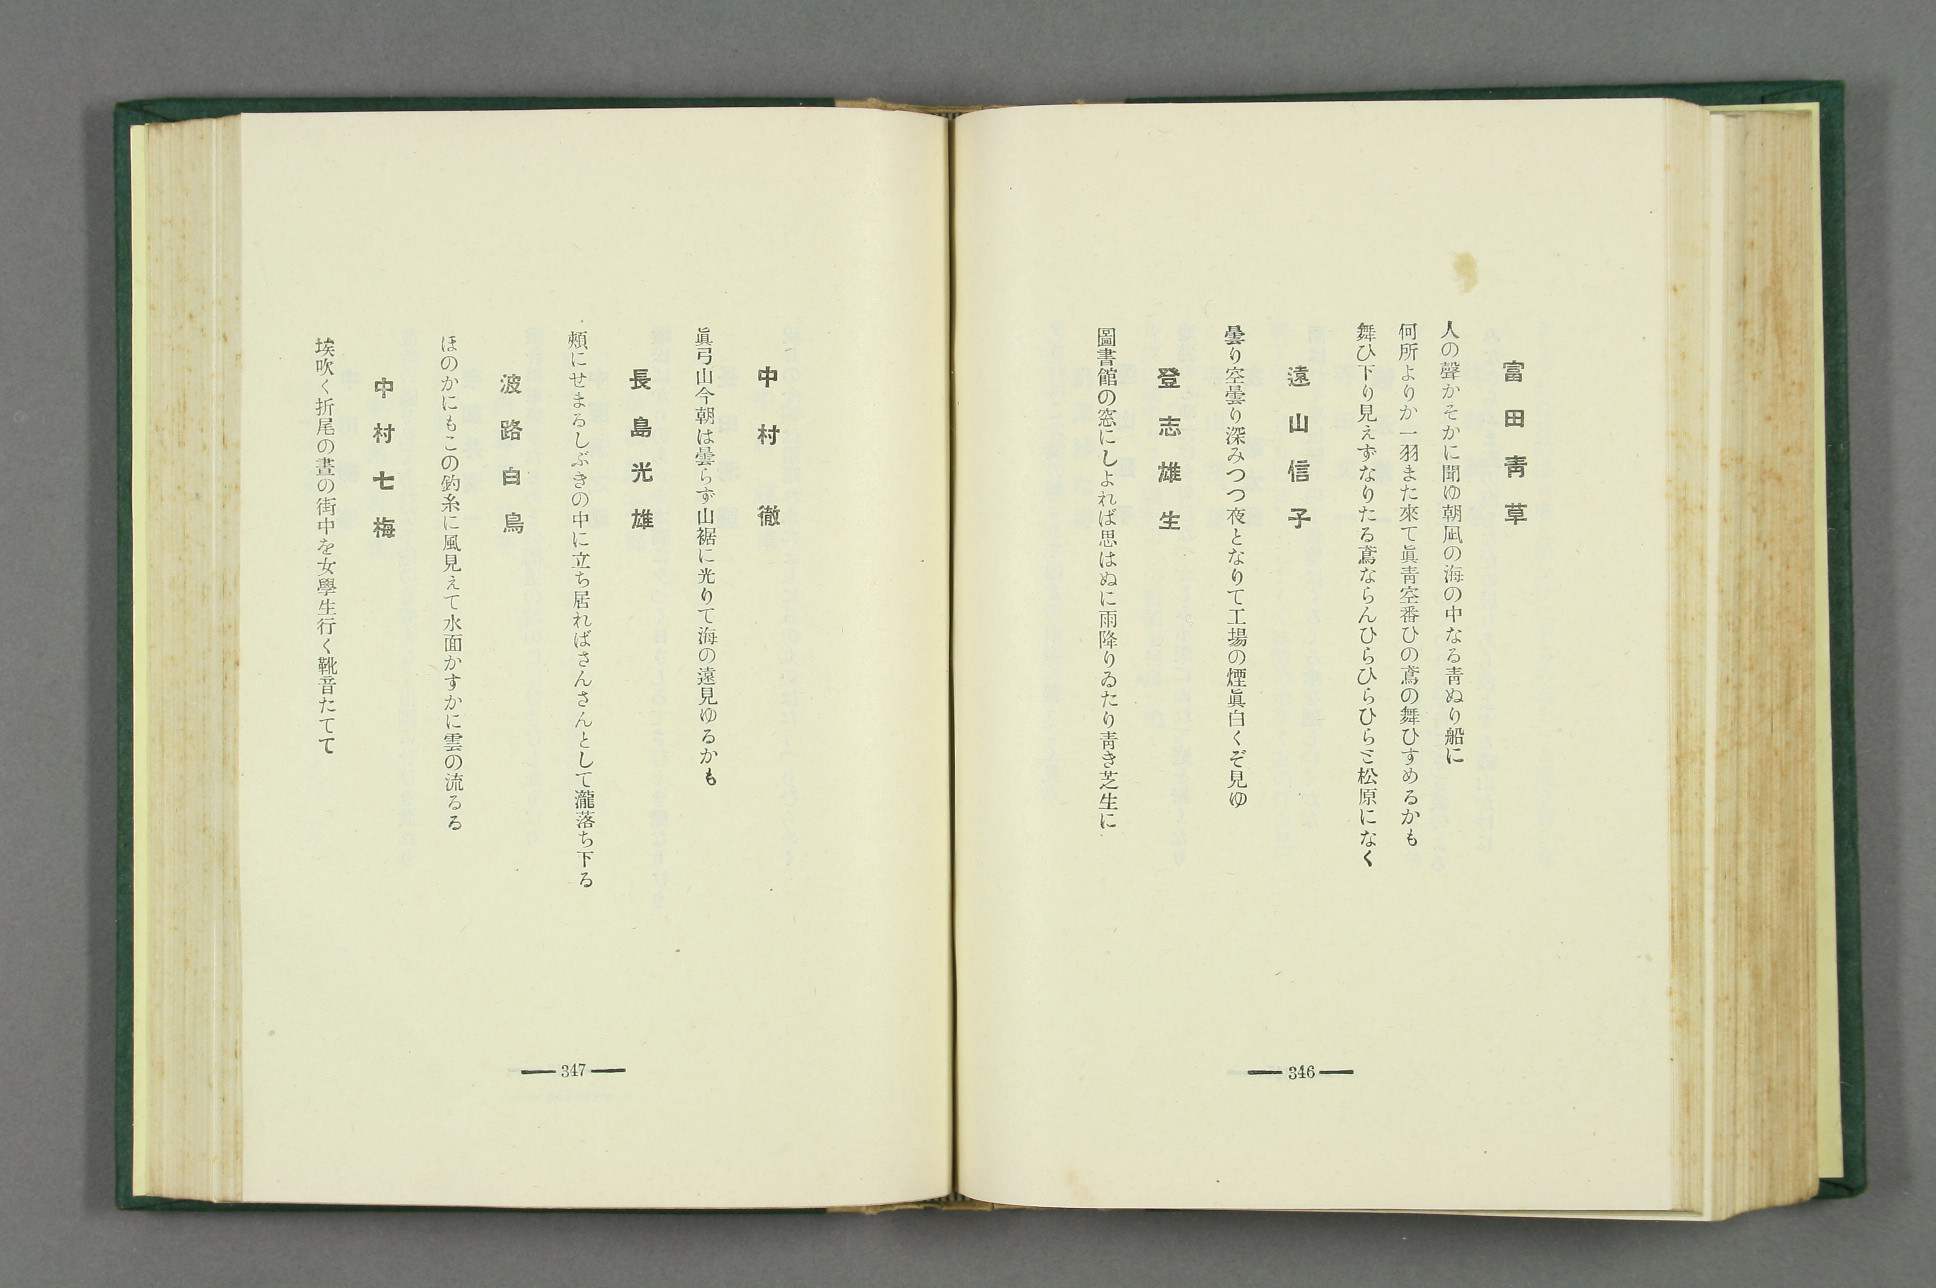 富田靑草
人の聲かそかに聞ゆ朝凪の海の中なる靑ぬり船に
何所よりか一羽また來て眞靑空番ひの鳶の舞ひすめるかも
舞ひ下り見えずなりたる鳶ならんひらひらひらと松原になく
遠山信子
曇り空曇り深みつつ夜となりて工場の煙眞白くぞ見ゆ
登志雄生
圖書館の窓にしよれば思はぬに雨降りゐたり靑き芝生に
346
中村徹
眞弓山今朝は曇らず山裾に光りて海の遠見ゆるかも
長島光雄
頰にせまるしぶきの中に立ち居ればさんさんとして瀧落ち下る
波路白鳥
ほのかにもこの釣糸に風見えて水面かすかに雲の流るる
中村七梅
埃吹く折尾の晝の街中を女學生行く靴音たてて
347